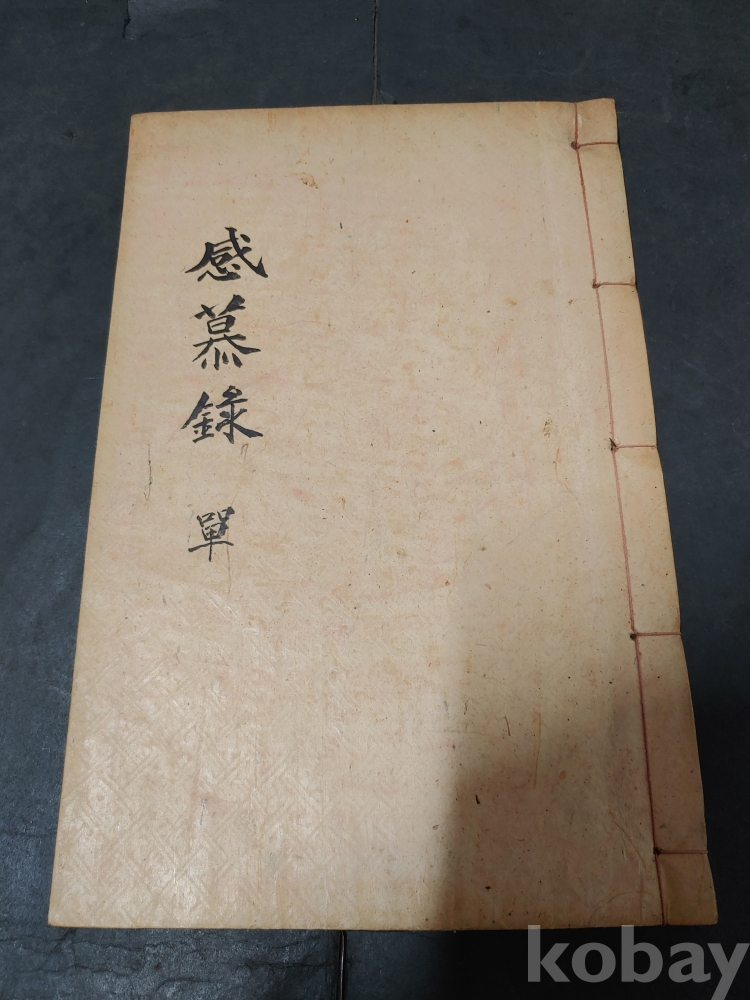 感慕錄 單
kobay